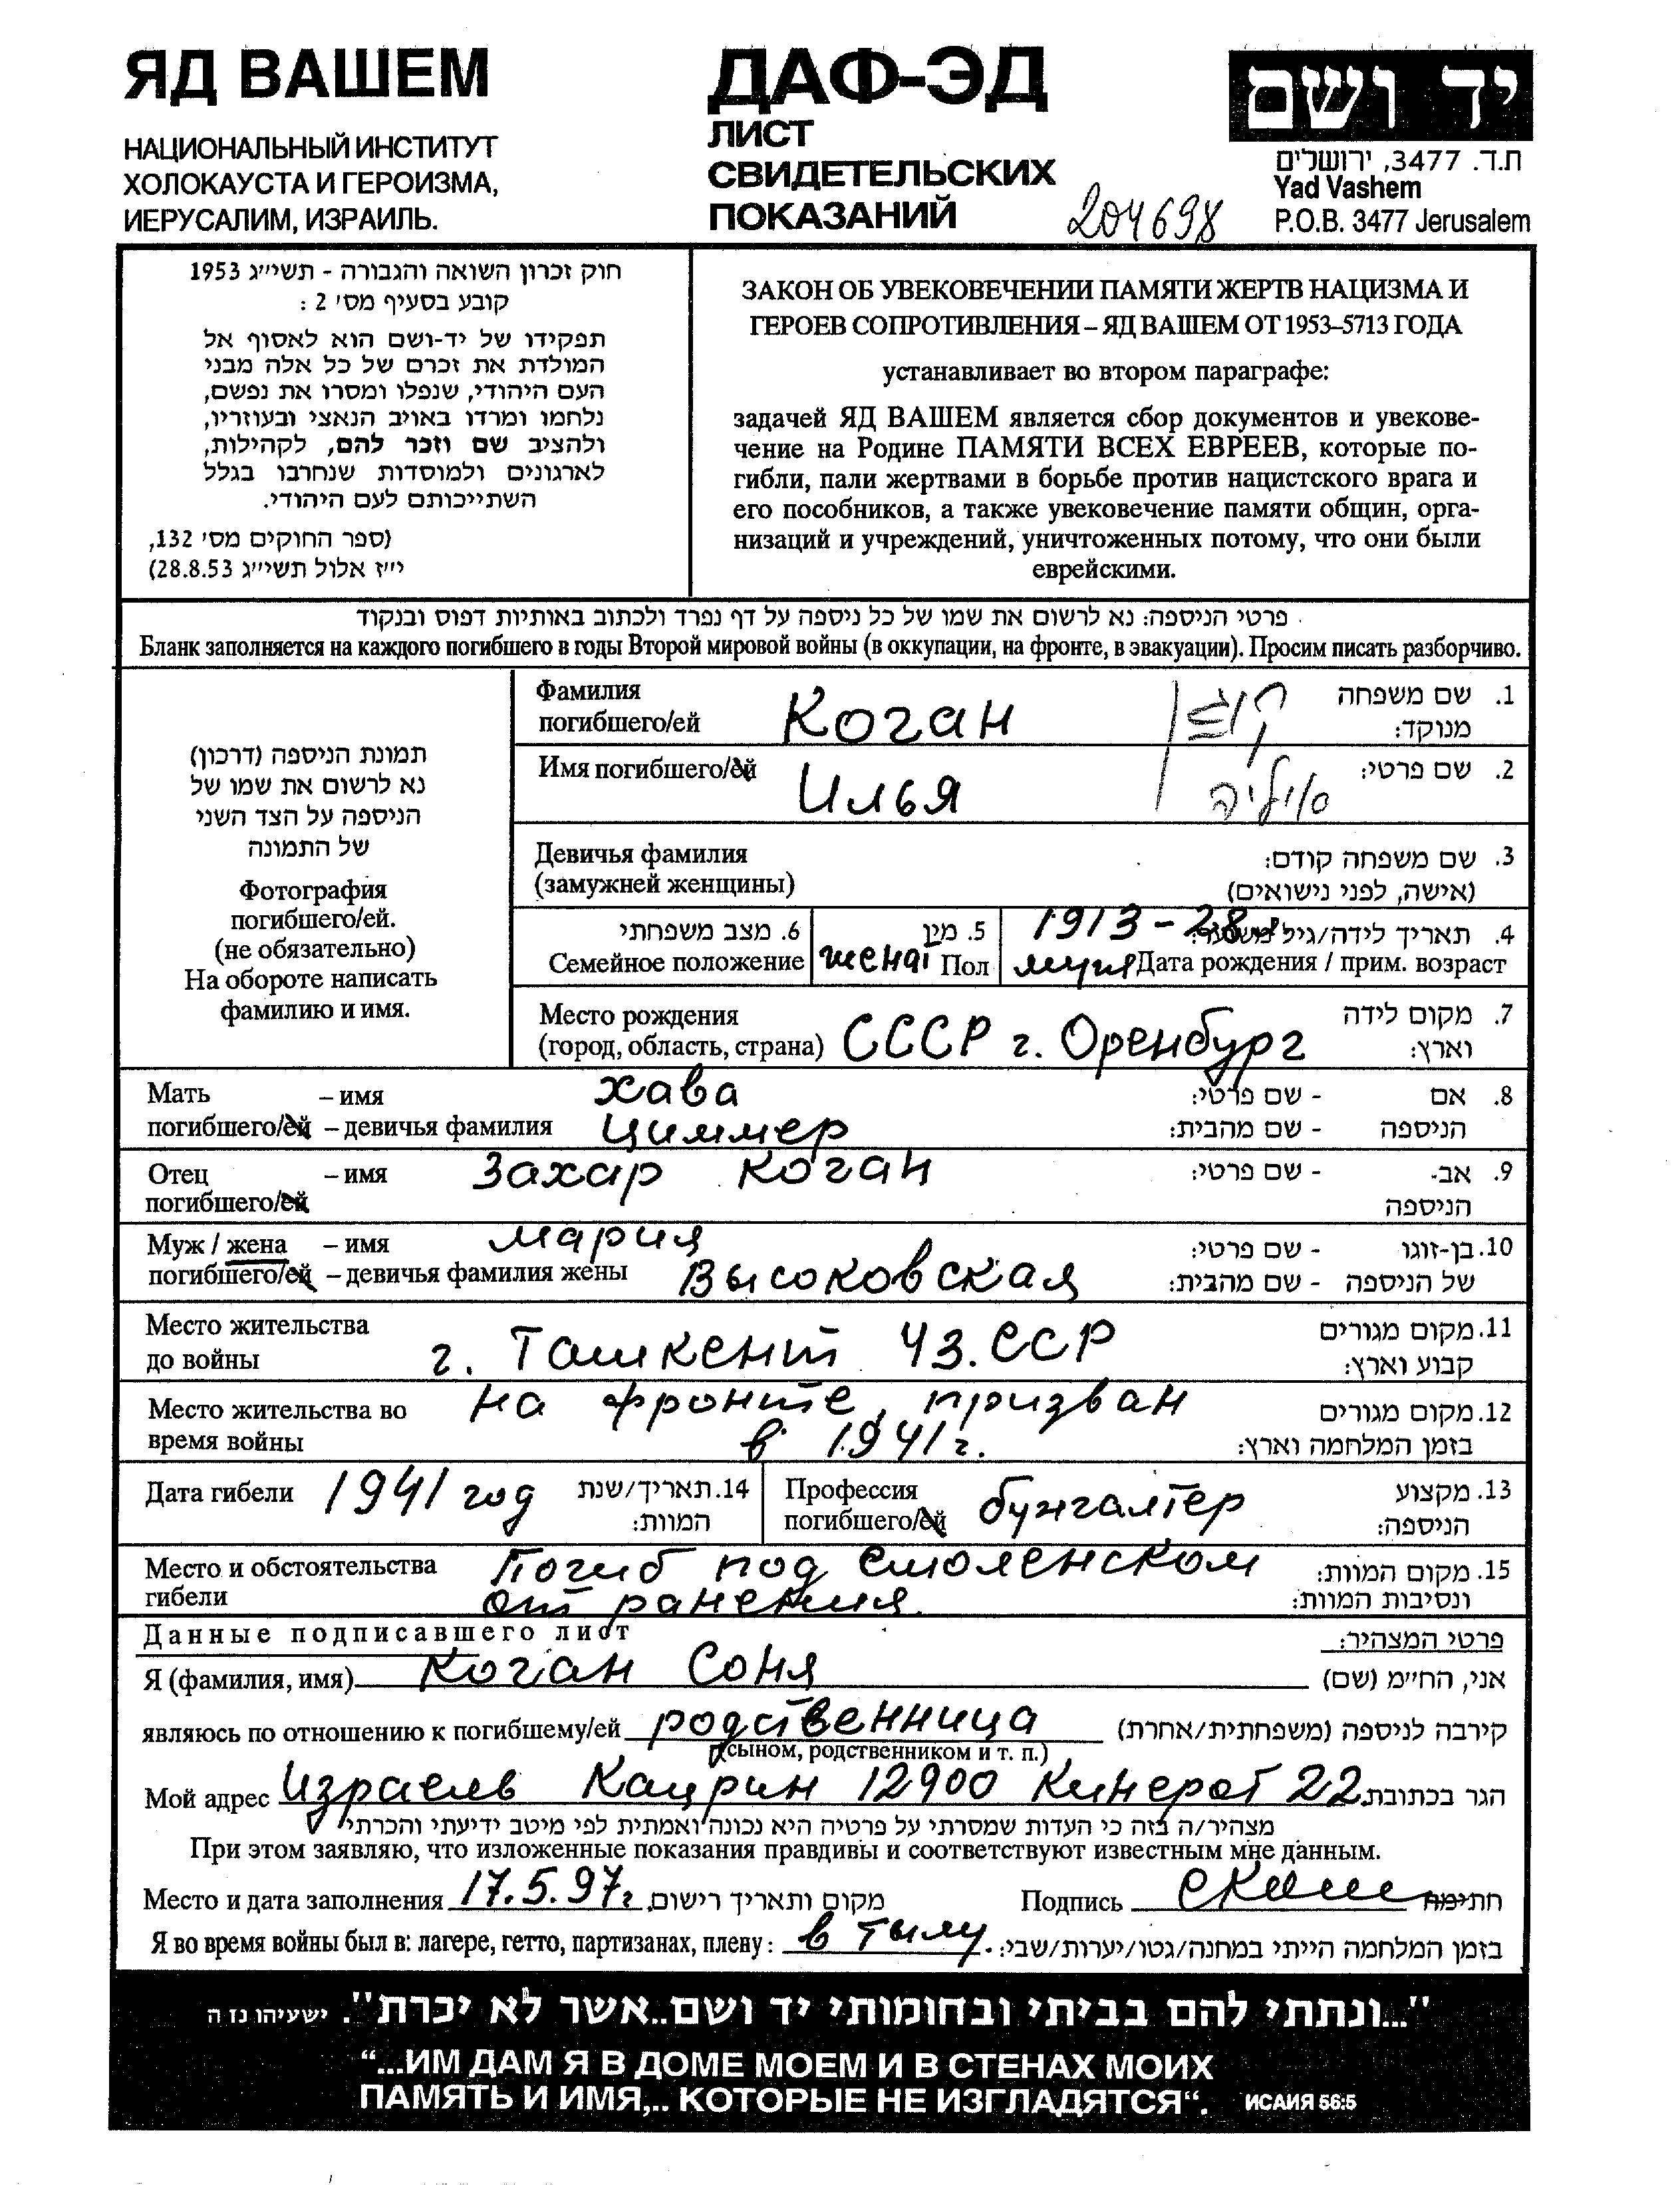 ЯД ВАШЕМ
НАЦИОНАЛЬНЫЙ ИНСТИТУТ
ХОЛОКАУСТА И ГЕРОИЗМА,
ИЕРУСАЛИМ, ИЗРАИЛЬ.
ДАФ-ЭД
ЛИСТ
СВИДЕТЕЛЬСКИХ
ПОКАЗАНИЙ
204698
יד ושם
ת.ד. 3477, ירושלים
Yad Vashem
P.O.B. 3477 Jerusalem
חוק זכרון השואה והגבורה - תשי״ג 1953
קובע בסעיף מס׳ 2 :
תפקידו של יד-ושם הוא לאסוף אל
המולדת את זכרם של כל אלה מבני
העם היהודי, שנפלו ומסרו את נפשם,
נלחמו ומרדו באויב הנאצי ובעוזריו,
ולהציב שם וזכר להם, לקהילות,
לארגונים ולמוסדות שנחרבו בגלל
השתייכותם לעם היהודי.
(ספר החוקים מס׳ 132,
י״ז אלול תשי״ג 28.8.53)
ЗАКОН ОБ УВЕКОВЕЧЕНИИ ПАМЯТИ ЖЕРТВ НАЦИЗМА И
ГЕРОЕВ СОПРОТИВЛЕНИЯ – ЯД ВАШЕМ ОТ 1953–5713 ГОДА
устанавливает во втором параграфе:
задачей ЯД ВАШЕМ является сбор документов и увекове-
чение на Родине ПАМЯТИ ВСЕХ ЕВРЕЕВ, которые по-
гибли, пали жертвами в борьбе против нацистского врага и
его пособников, а также увековечение памяти общин, орга-
низаций и учреждений, уничтоженных потому, что они были
еврейскими.
פרטי הניספה: נא לרשום את שמו של כל ניספה על דף נפרד ולכתוב באותיות דפוס ובנקוד
Бланк заполняется на каждого погибшего в годы Второй мировой войны (в оккупации, на фронте, в эвакуации). Просим писать разборчиво.
תמונת הניספה (דרכון)
נא לרשום את שמו של
הניספה על הצד השני
של התמונה
Фотография
погибшего/ей.
(не обязательно)
На обороте написать
фамилию и имя.
Фамилия
погибшего/ей Коган קוגן
1. שם משפחה
מנוקד:
Имя погибшего/ей Илья
2. שם פרטי:
Девичья фамилия
(замужней женщины)
3. שם משפחה קודם:
(אישה, לפני נישואים)
6. מצב משפחתי
Семейное положение
женат
5. מין
Пол
муж
1913 – 28
4. תאריך לידה/גיל משוער:
Дата рождения / прим. возраст
Место рождения
(город, область, страна) СССР г. Оренбург
7. מקום לידה
וארץ:
Мать – имя Хава
погибшего/ей – девичья фамилия Циммер
8. אם - שם פרטי:
הניספה - שם מהבית:
Отец – имя Захар Коган
погибшего/ей
9. אב- - שם פרטי:
הניספה
Муж / жена – имя Мария
погибшего/ей – девичья фамилия жены Высоковская
10. בן-זוגו - שם פרטי:
של הניספה - שם מהבית:
Место жительства
до войны г. Ташкент Уз. ССР
11. מקום מגורים
קבוע וארץ:
Место жительства во
время войны
на фронте, призван
в 1941 г.
12. מקום מגורים
בזמן המלחמה וארץ:
Дата гибели 1941 год
14. תאריך/שנת
המוות:
Профессия
погибшего/ей бухгалтер
13. מקצוע
הניספה:
Место и обстоятельства
гибели
Погиб под Смоленском
от ранения.
15. מקום המוות:
ונסיבות המוות:
Данные подписавшего лист
פרטי המצהיר:
Я (фамилия, имя) Коган Соня אני, הח״מ (שם)
являюсь по отношению к погибшему/ей родственница קירבה לניספה (משפחתית/אחרת)
(сыном, родственником и т. п.)
Мой адрес Израель Кацрин 12900 Кинерот 22 הגר בכתובת
מצהיר/ה בזה כי העדות שמסרתי על פרטיה היא נכונה ואמתית לפי מיטב ידיעתי והכרתי
При этом заявляю, что изложенные показания правдивы и соответствуют известным мне данным.
Место и дата заполнения 17.5.97г. מקום ותאריך רישום Подпись חתימה
Я во время войны был в: лагере, гетто, партизанах, плену: в тылу. בזמן המלחמה הייתי במחנה/גטו/יערות/שבי:
"...ונתתי להם בביתי ובחומותי יד ושם..אשר לא יכרת". ישעיהו נו ה
“...ИМ ДАМ Я В ДОМЕ МОЕМ И В СТЕНАХ МОИХ
ПАМЯТЬ И ИМЯ,.. КОТОРЫЕ НЕ ИЗГЛАДЯТСЯ“. ИСАИЯ 56:5